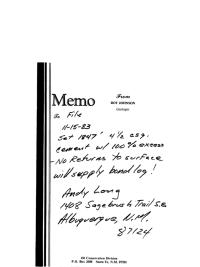 Memo
From
ROY JOHNSON
Geologist
To File
11-15-83
Set 1847' 4½ csg.
cement w/ 100% excess
- No Returns to surface
will supply bond log!
Andy Long
1408 Sagebrush Trail S.E.
Albuquerque, N.M.
87124
Oil Conservation Division
P.O. Box 2088 Santa Fe, N.M. 87501